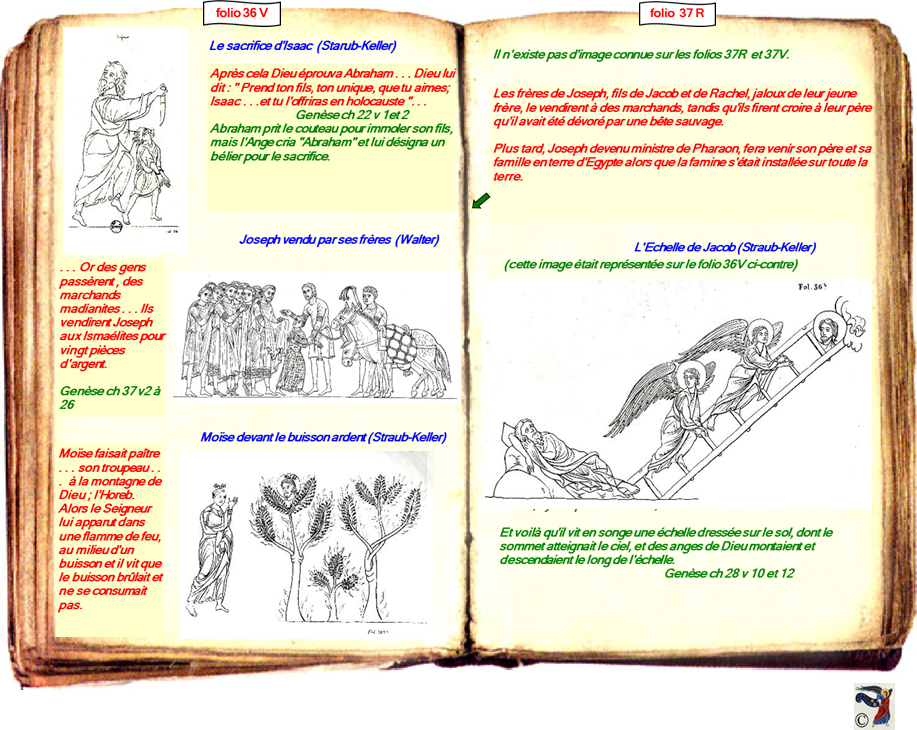 folio 36 V
Le sacrifice d'Isaac (Starub-Keller)
Après cela Dieu éprouva Abraham . . . Dieu lui
dit : " Prend ton fils, ton unique, que tu aimes;
Isaac . . .et tu l'offriras en holocauste ". . .
Genèse ch 22 v 1et 2
Abraham prit le couteau pour immoler son fils,
mais l'Ange cria "Abraham" et lui désigna un
bélier pour le sacrifice.
Joseph vendu par ses frères (Walter)
. . . Or des gens
passèrent , des
marchands
madianites . . . Ils
vendirent Joseph
aux Ismaélites pour
vingt pièces
d'argent.
Genèse ch 37 v2 à
26
Moïse devant le buisson ardent (Straub-Keller)
Moïse faisait paître
. . . son troupeau . .
. à la montagne de
Dieu ; l'Horeb.
Alors le Seigneur
lui apparut dans
une flamme de feu,
au milieu d'un
buisson et il vit que
le buisson brûlait et
ne se consumait
pas.
folio 37 R
Il n'existe pas d'image connue sur les folios 37R et 37V.
Les frères de Joseph, fils de Jacob et de Rachel, jaloux de leur jeune
frère, le vendirent à des marchands, tandis qu'ils firent croire à leur père
qu'il avait été dévoré par une bête sauvage.
Plus tard, Joseph devenu ministre de Pharaon, fera venir son père et sa
famille en terre d'Egypte alors que la famine s'était installée sur toute la
terre.
L'Echelle de Jacob (Straub-Keller)
(cette image était représentée sur le folio 36V ci-contre)
Fol. 36
Et voilà qu'il vit en songe une échelle dressée sur le sol, dont le
sommet atteignait le ciel, et des anges de Dieu montaient et
descendaient le long de l'échelle.
Genèse ch 28 v 10 et 12
©